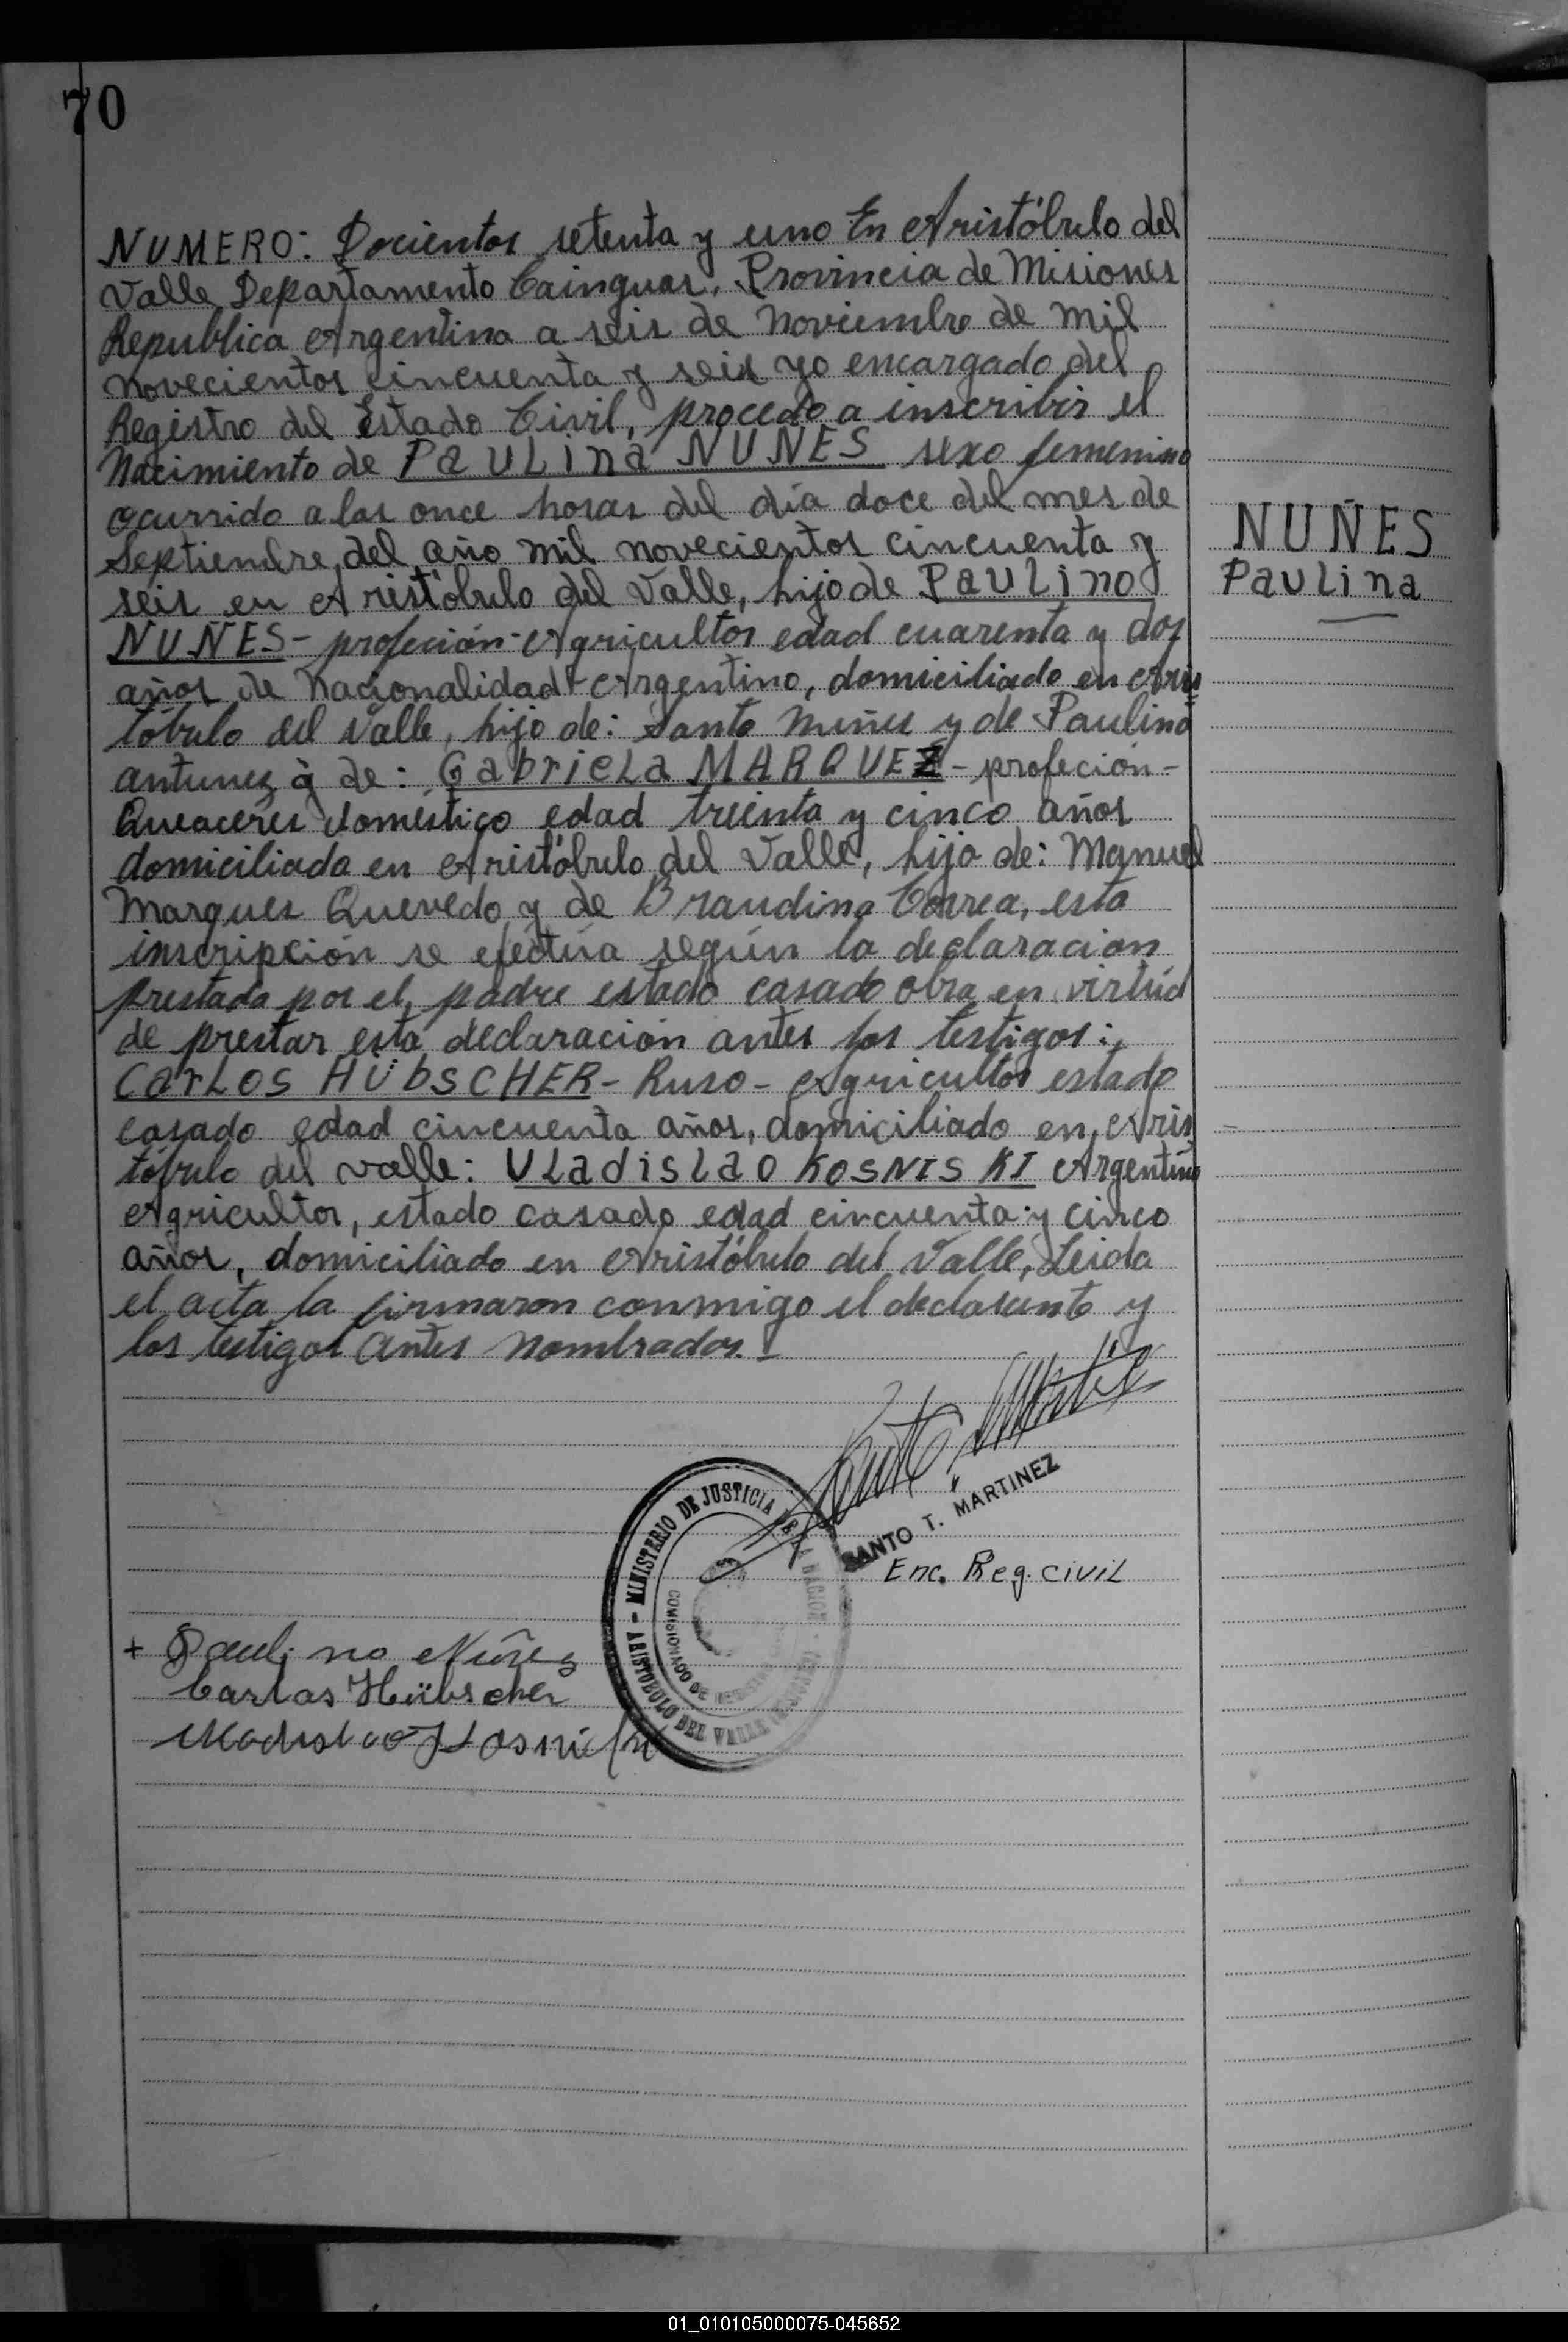 70
NUMERO: Docientos setenta y uno En Aristóbulo del
Valle Departamento Cainguas, Provincia de Misiones
Republica Argentina a seis de Noviembre de Mil
Novecientos cincuenta y seis yo encargado del
Registro del Estado Civil, procedo a inscribir el
Nacimiento de PAULINA NUNES sexo femenino
Ocurrido a las once horas del día doce del mes de
Septiembre del año mil novecientos cincuenta y
seis en Aristóbulo del Valle, hijo de PAULINO
NUÑES - profeción - Agricultor edad cuarenta y dos
años de Nacionalidad Argentino, domiciliado en Aris
tóbulo del Valle, hijo de: Santo Nuñes y de Paulina
antunez y de: GABRIELA MARQUEZ - profeción -
Queaceres domestico edad treinta y cinco años
domiciliada en Aristóbulo del Valle, hija de: Manuel
Marques Quevedo y de Braudina Correa, esta
inscripción se eféctúa según la declaracion
prestada por el padre estado casado obra en virtúd
de prestar esta declaración antes los testigos:
CARLOS HÜBSCHER - Ruso - Agricultor estado
casado edad cincuenta años, domiciliado en Aris
tóbulo del valle: ULADISLAO KOSNISKI Argentino
Agricultor, estado casado edad cincuenta y cinco
años, domiciliado en Aristóbulo del Valle, Leida
el acta la firmaron conmigo el declarante y
los testigos antes nombrados. -
NUÑES
Paulina
SANTO T. MARTINEZ
Enc. Reg. Civil
MINISTERIO DE JUSTICIA DE LA NACION
ARISTOBULO DEL VALLE
COMISIONADO DE
+ Paulino Nuñes
Carlos Hübscher
Uladislao Kosniski
01_010105000075-045652